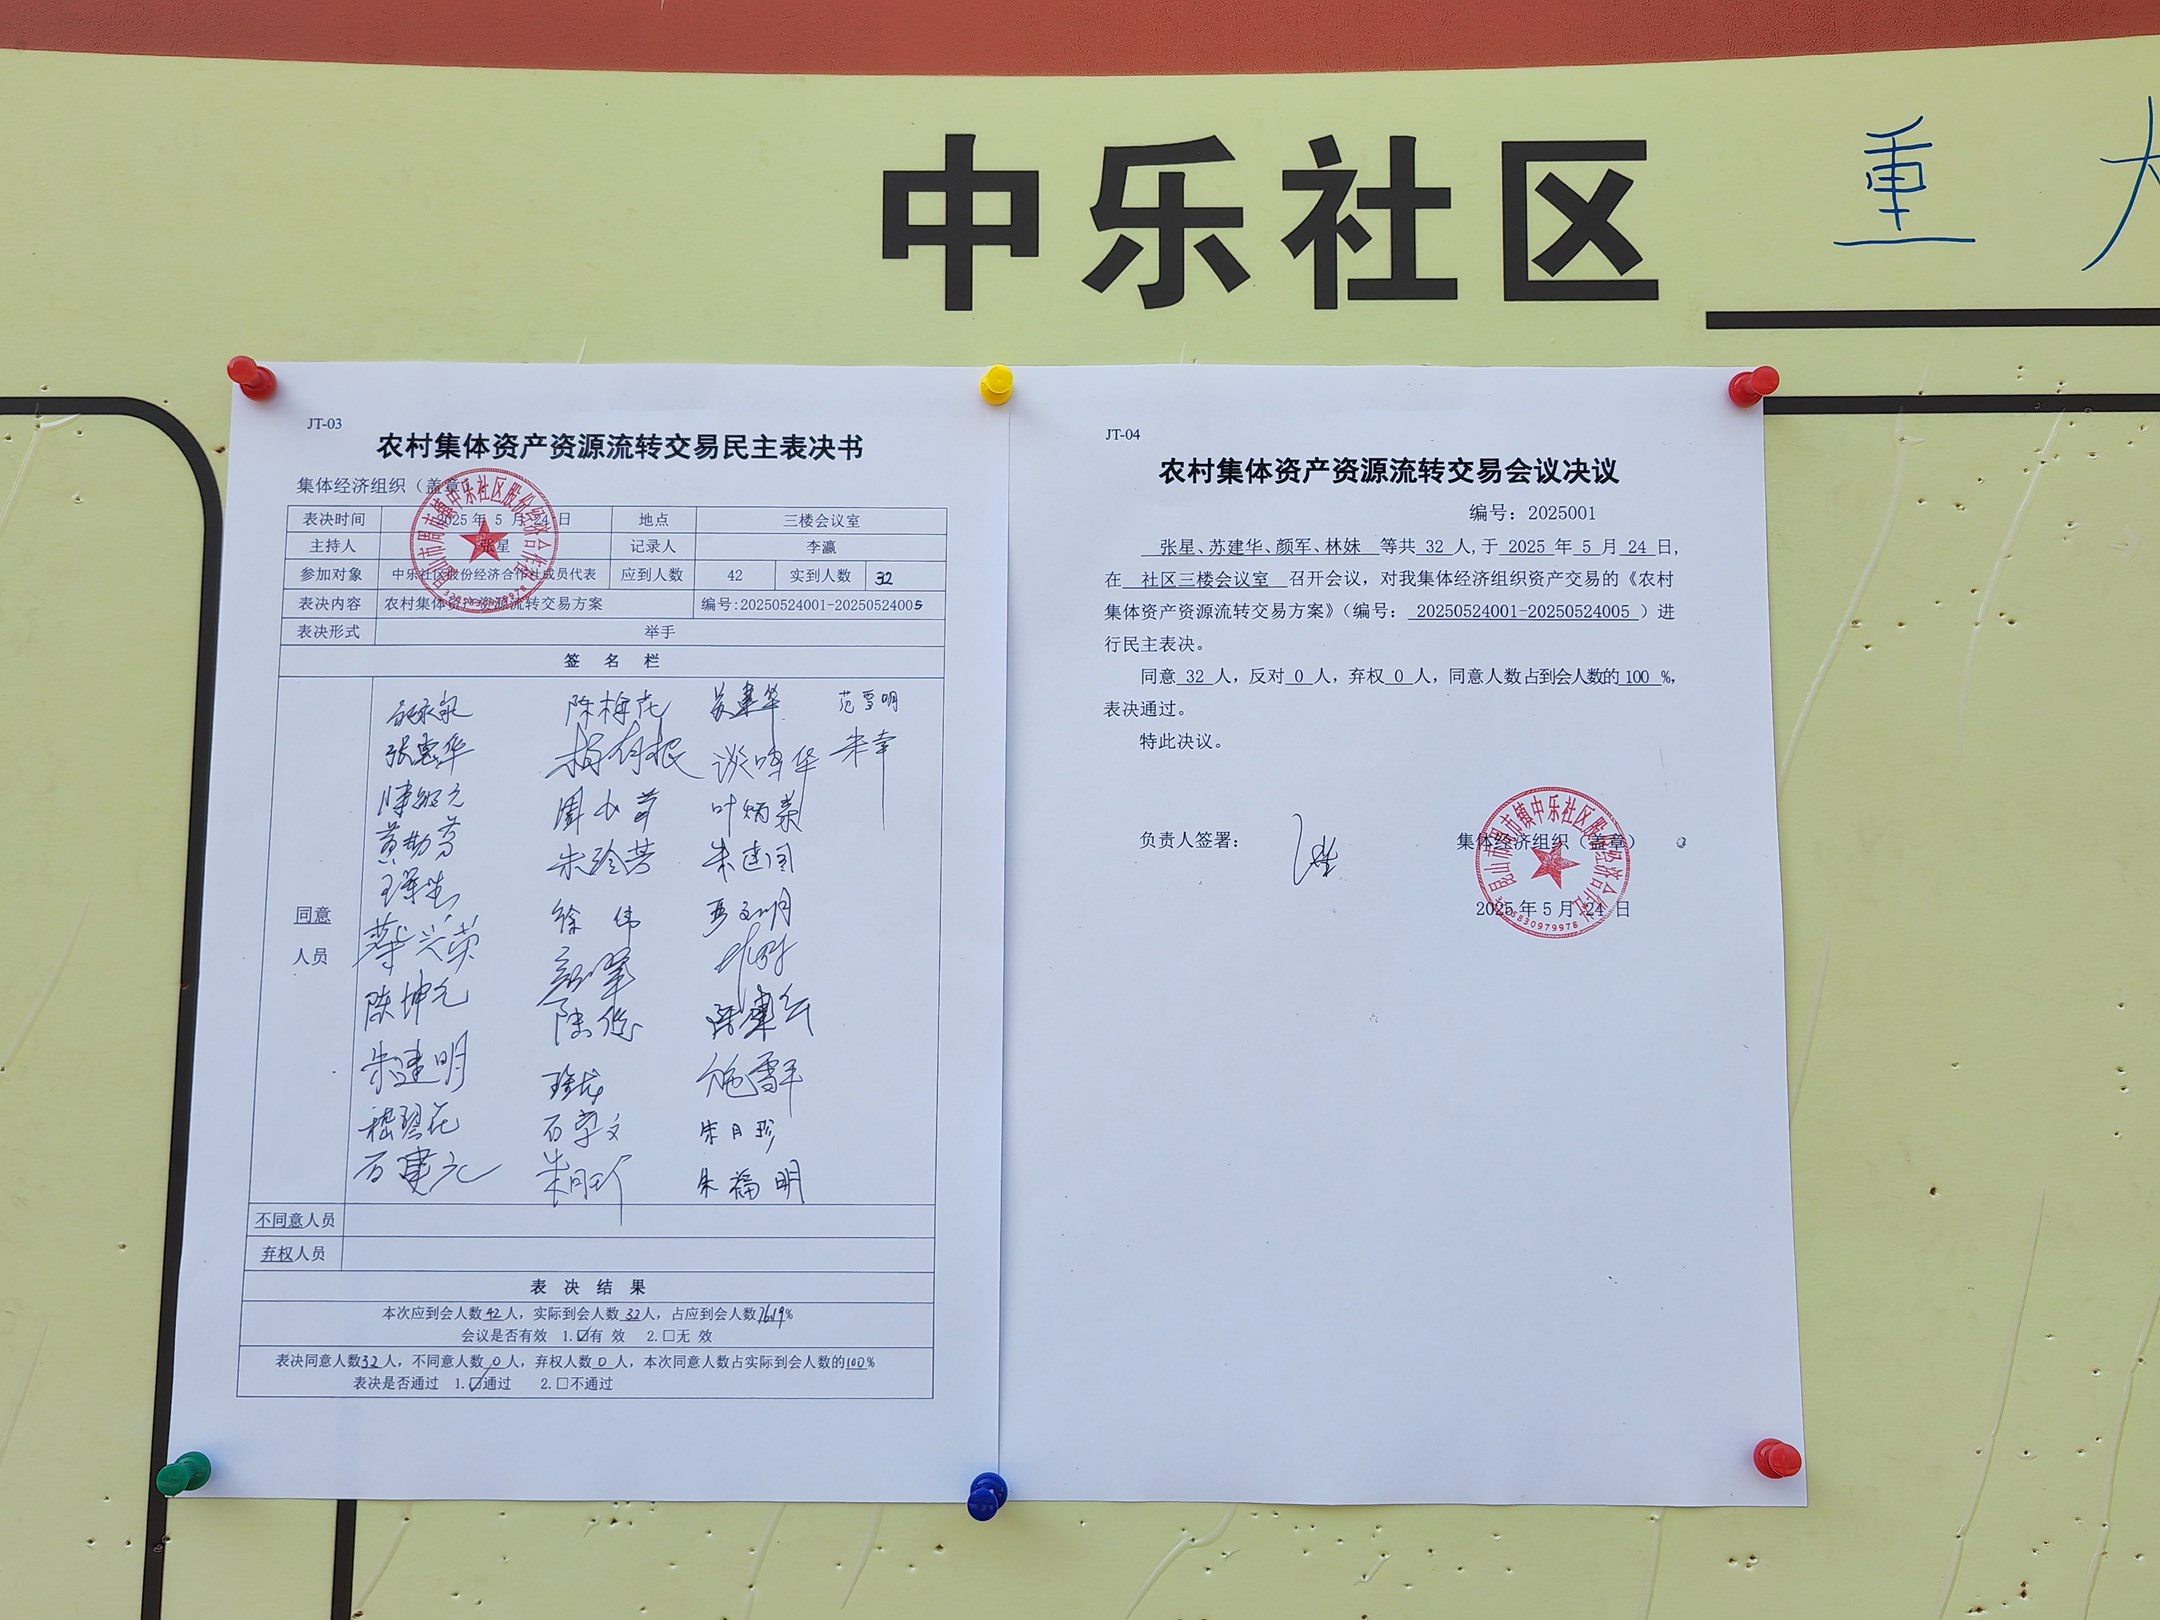 中乐社区 重大
JT-03
农村集体资产资源流转交易民主表决书
集体经济组织（盖章）
表决时间 2025 年 5 月 24 日 地点 三楼会议室
主持人 张星 记录人 李瀛
参加对象 中乐社区股份经济合作社成员代表 应到人数 42 实到人数 32
表决内容 农村集体资产资源流转交易方案 编号:20250524001-20250524005
表决形式 举手
签 名 栏
同意
人员
陈梅花 苏建华 范雪明
张惠华 杨有根 谈鸣华 朱幸
叶炳荣
朱玲芳 朱建国
徐伟
颜军
陈坤元
朱建明 施雪平
石学文 朱月珍
石建元 朱福明
不同意人员
弃权人员
表 决 结 果
本次应到会人数 42 人，实际到会人数 32 人，占应到会人数 76.19%
会议是否有效 1.☑有 效 2.□无 效
表决同意人数 32 人，不同意人数 0 人，弃权人数 0 人，本次同意人数占实际到会人数的 100%
表决是否通过 1.☑通过 2.□不通过
JT-04
农村集体资产资源流转交易会议决议
编号：2025001
张星、苏建华、颜军、林妹 等共 32 人，于 2025 年 5 月 24 日，
在 社区三楼会议室 召开会议，对我集体经济组织资产交易的《农村
集体资产资源流转交易方案》（编号： 20250524001-20250524005 ）进
行民主表决。
同意 32 人，反对 0 人，弃权 0 人，同意人数占到会人数的 100 %，
表决通过。
特此决议。
负责人签署： 集体经济组织（盖章）
2025 年 5 月 24 日
昆山市周市镇中乐社区股份经济合作社
3205830979978